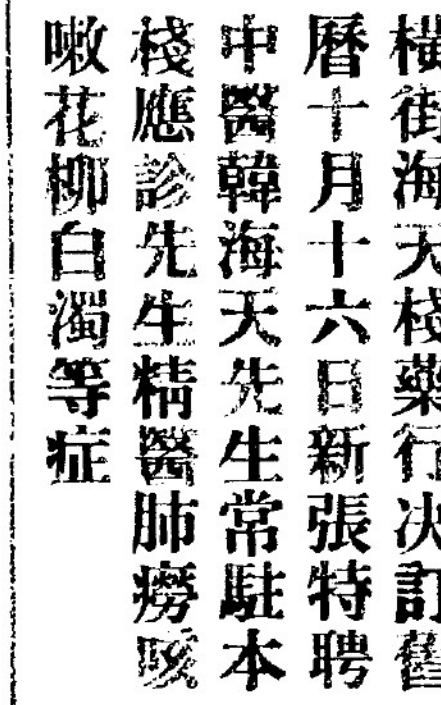 橫街海天棧藥行决訂舊
曆十月十六日新張特聘
中醫韓海天先生常駐本
棧應診先生精醫肺癆咳
嗽花柳白濁等症